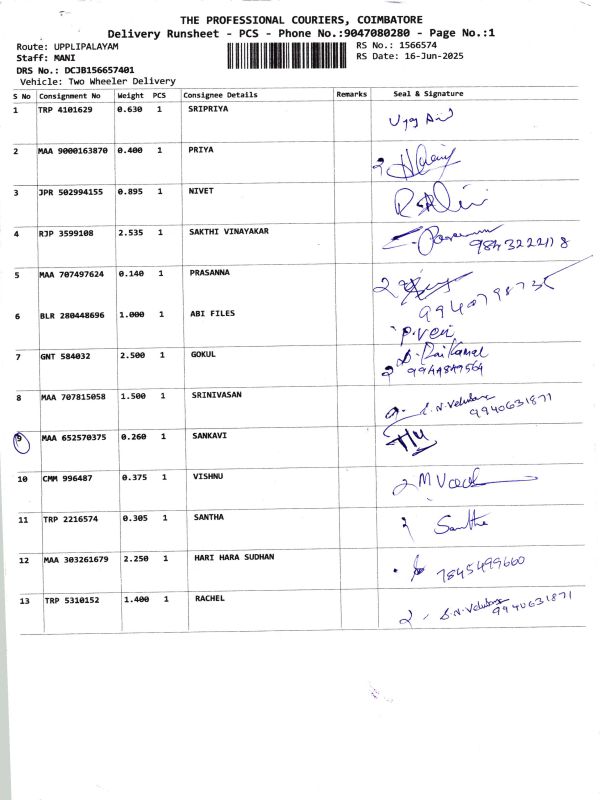 THE PROFESSIONAL COURIERS, COIMBATORE
Delivery Runsheet - PCS - Phone No.:9047080280 - Page No.:1
Route: UPPLIPALAYAM RS No.: 1566574
Staff: MANI RS Date: 16-Jun-2025
DRS No.: DCJB156657401
Vehicle: Two Wheeler Delivery
S No Consignment No Weight PCS Consignee Details Remarks Seal & Signature
1 TRP 4101629 0.630 1 SRIPRIYA
2 MAA 9000163870 0.400 1 PRIYA
3 JPR 502994155 0.895 1 NIVET
4 RJP 3599108 2.535 1 SAKTHI VINAYAKAR
5 MAA 707497624 0.140 1 PRASANNA
6 BLR 280448696 1.000 1 ABI FILES
P. veni
7 GNT 584032 2.500 1 GOKUL
8 MAA 707815058 1.500 1 SRINIVASAN
9940631871
9 MAA 652570375 0.260 1 SANKAVI
10 CMM 996487 0.375 1 VISHNU
11 TRP 2216574 0.305 1 SANTHA Santha
12 MAA 303261679 2.250 1 HARI HARA SUDHAN 7845499660
13 TRP 5310152 1.400 1 RACHEL 9940631871